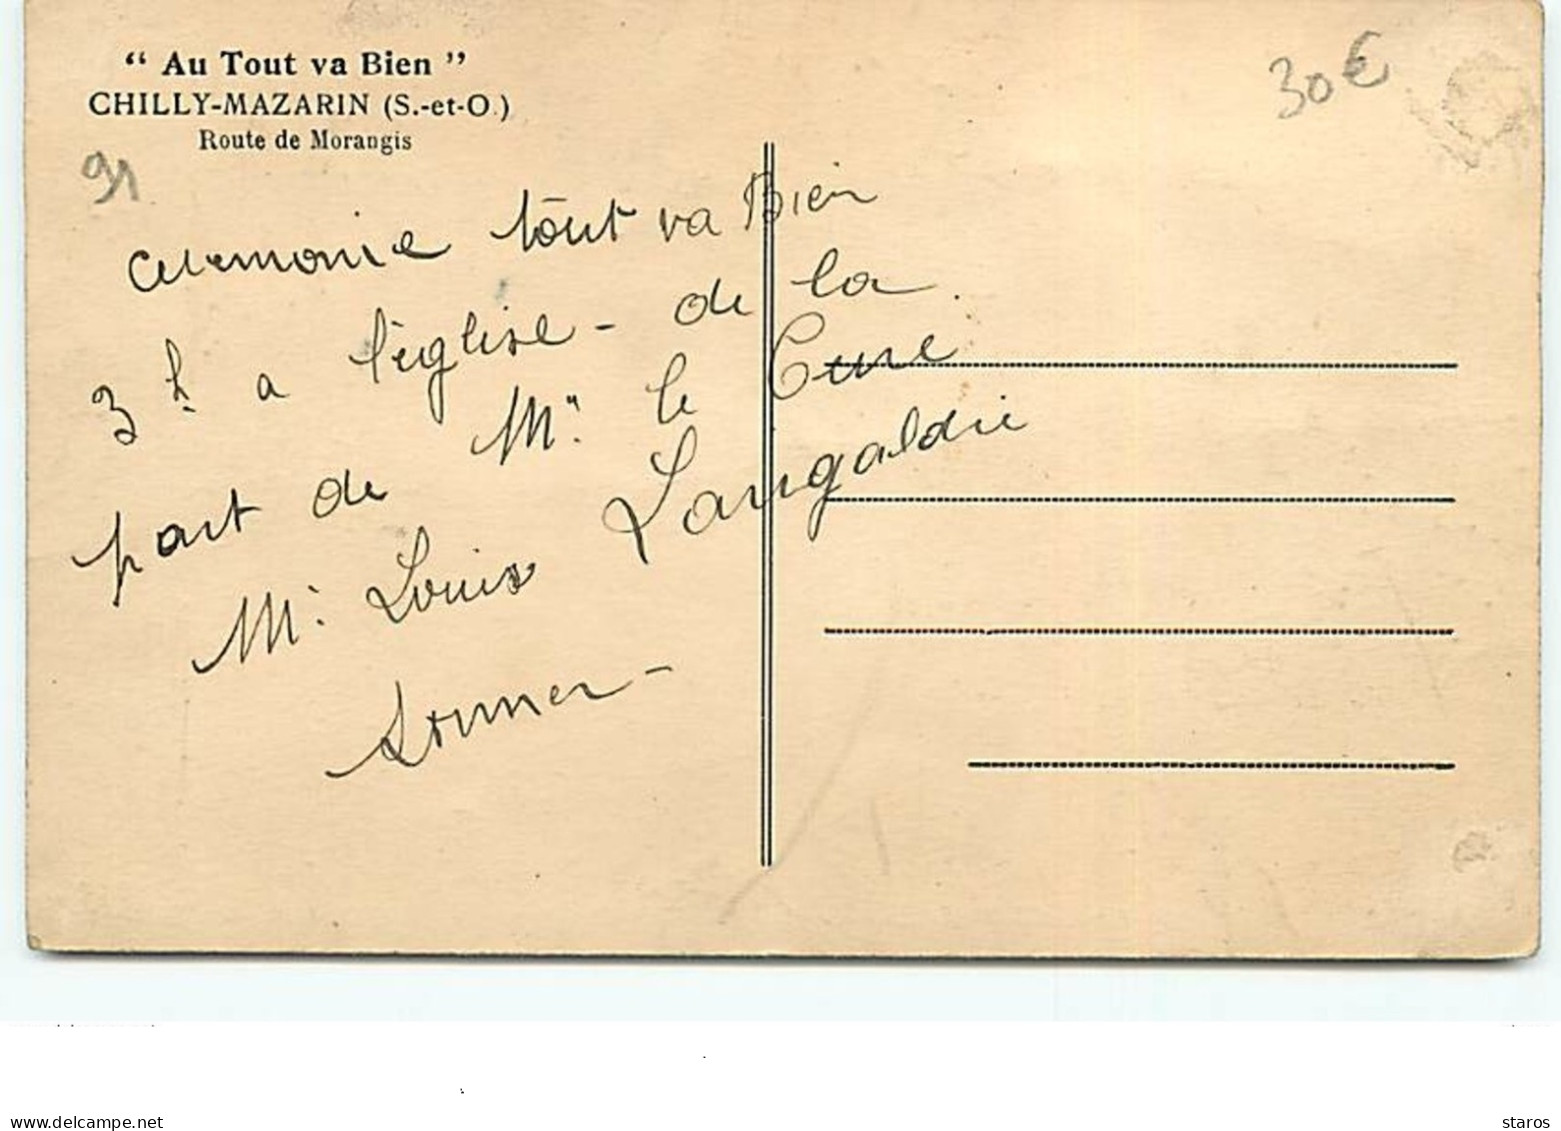 “ Au Tout va Bien ”
CHILLY-MAZARIN (S.-et-O.)
Route de Morangis
30 €
91
Ceremonie tout va Bien
3 h. a l'église - de la
part de Mr. le Cure
Mr. Louis Langaldie
www.delcampe.net
staros